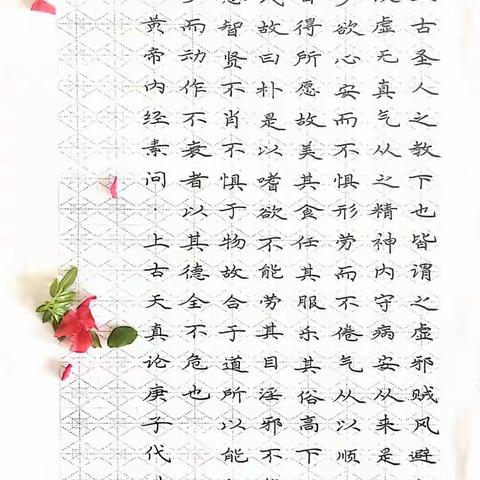 古圣人之教下也皆谓之虚邪贼风避
虚无真气从之精神内守病安从来是
欲心安而不惧形劳而不倦气从以顺
得所愿故美其食任其服乐其俗高下
故曰朴是以嗜欲不能劳其目淫邪不
智贤不肖不惧于物故合于道所以能
而动作不衰者以其德全不危也
黄帝内经素问·上古天真论庚子代